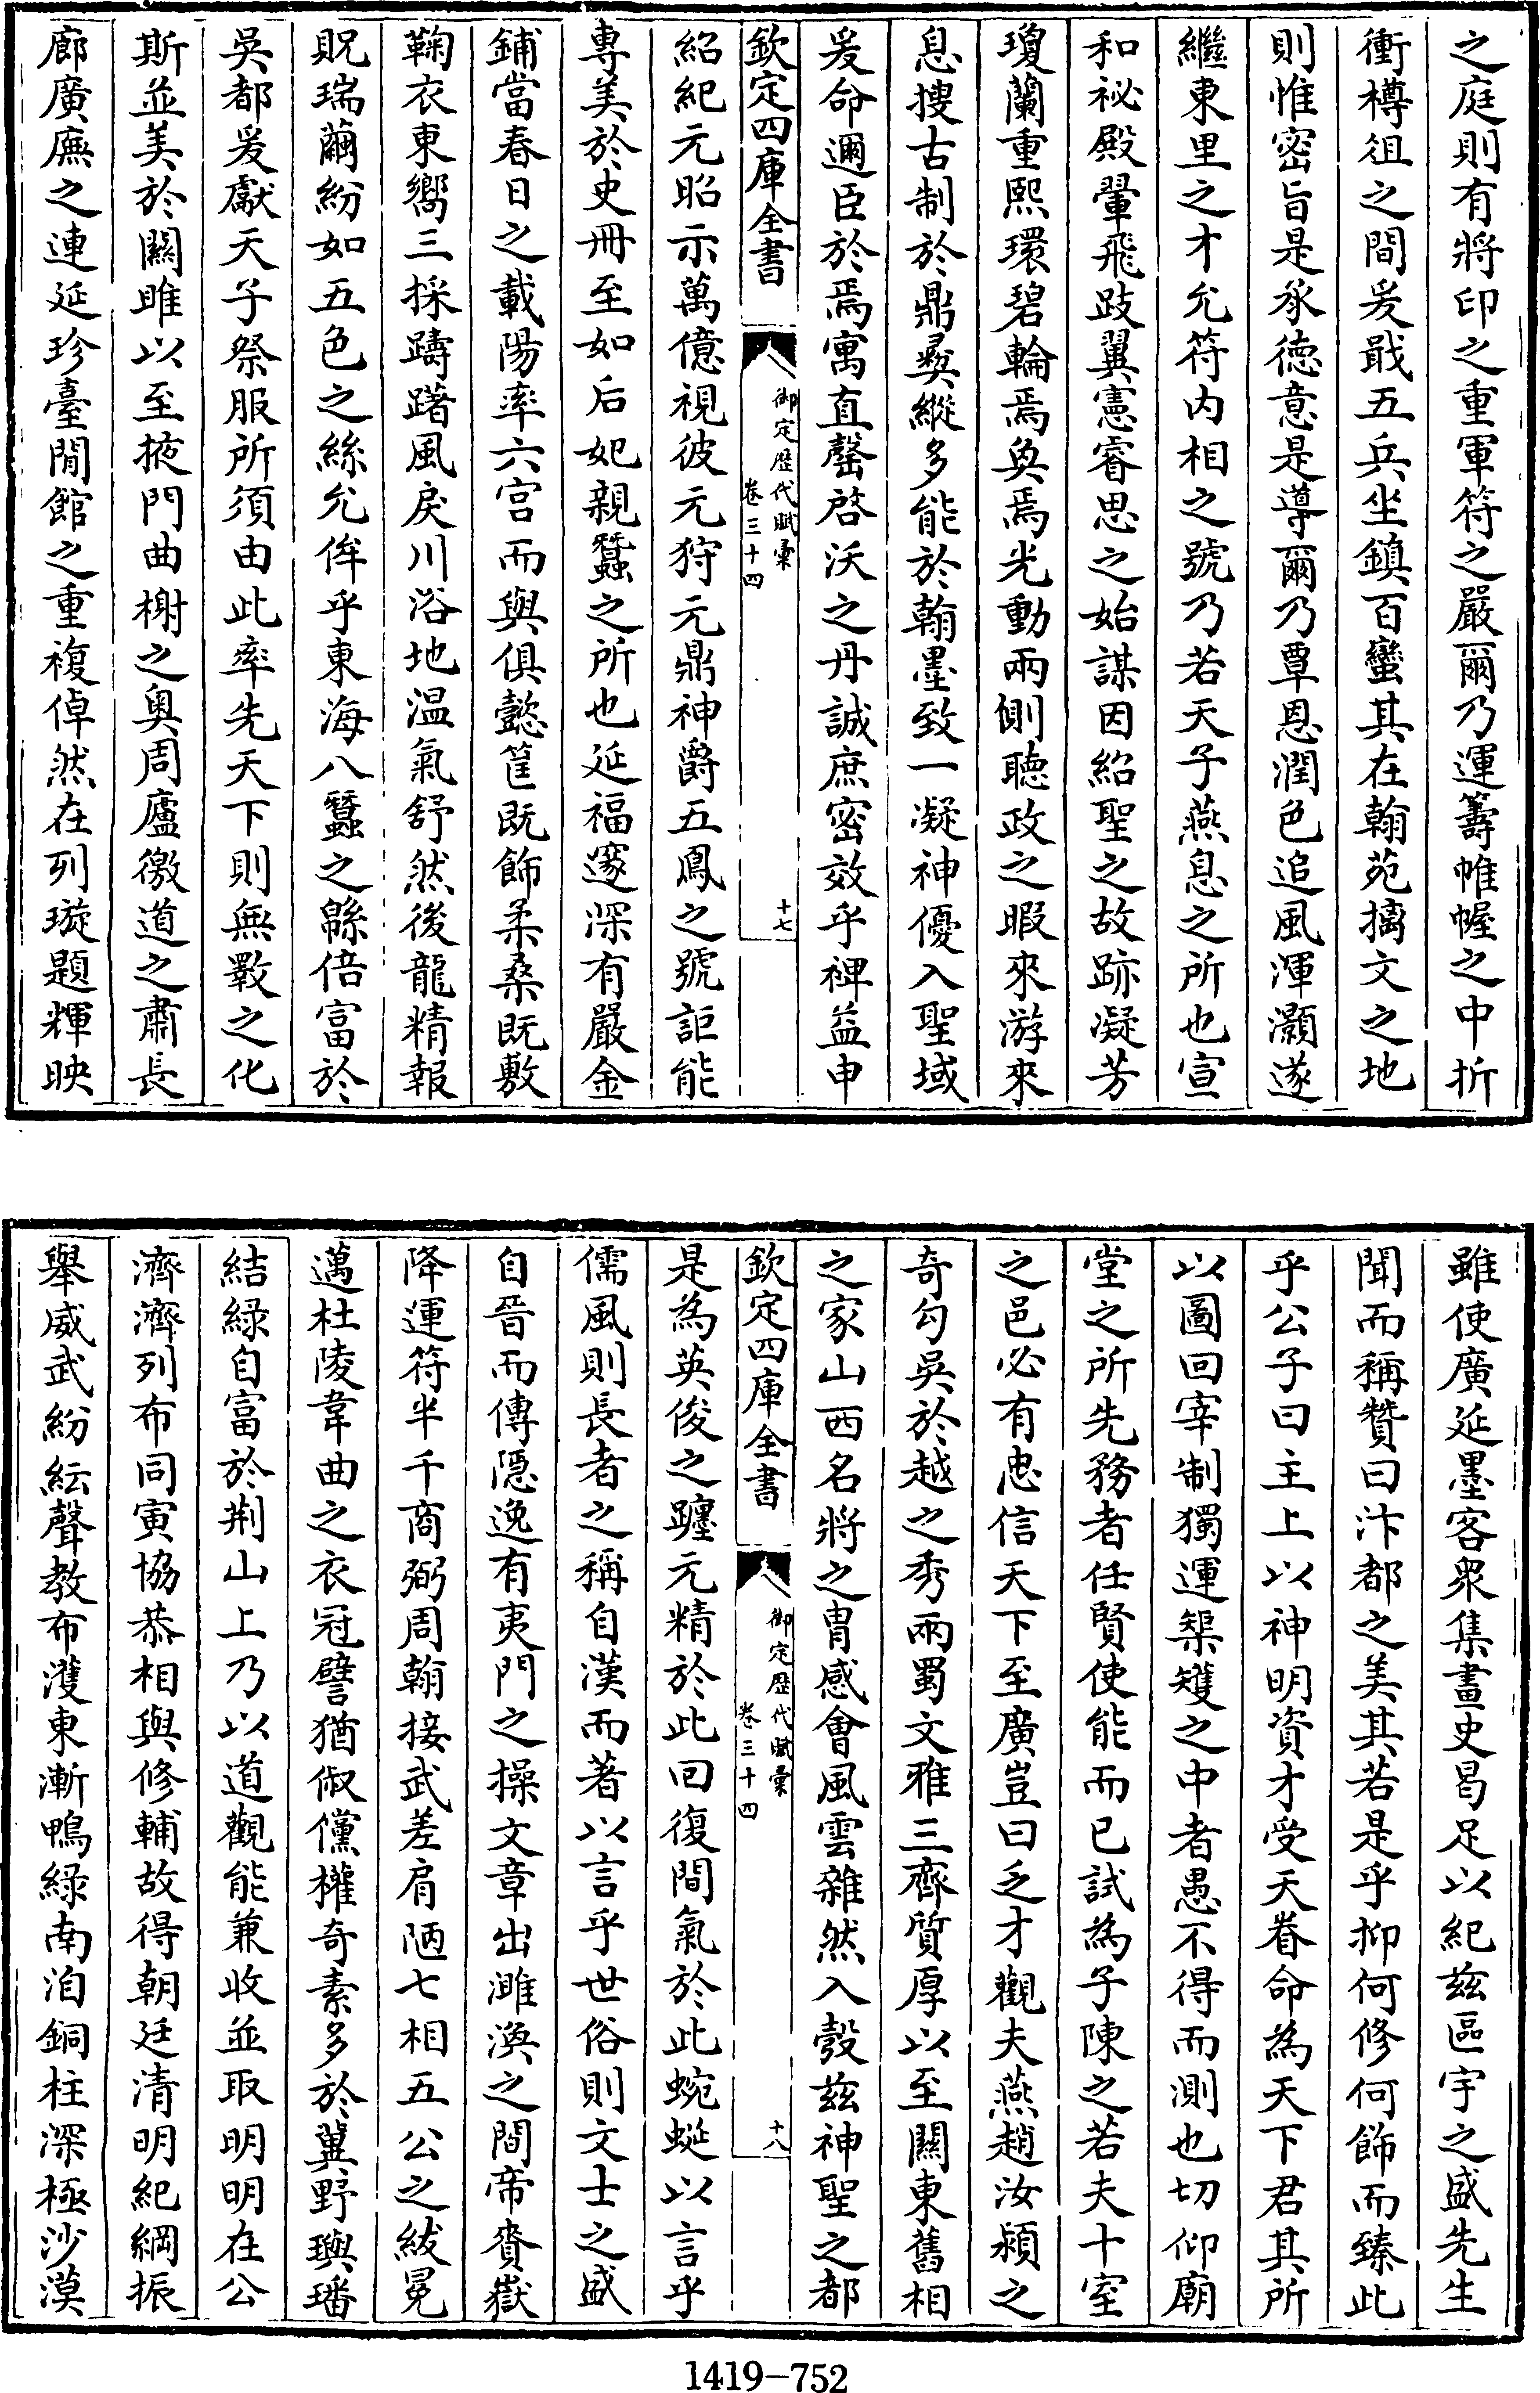 之庭則有將印之重軍符之嚴爾乃運籌帷幄之中折
衝樽徂之間爰戢五兵坐鎮百蠻其在翰苑摛文之地
則惟密旨是承德意是導爾乃覃恩潤色追風渾灝遂
繼東里之才允符内相之號乃若天子燕息之所也宣
和祕殿翬飛跂翼憲睿思之始謀因紹聖之故跡凝芳
瓊蘭重熙環碧輪焉奐焉光動兩側聽政之暇來游來
息搜古制於鼎彞縱多能於翰墨致一凝神優入聖域
爰命邇臣於焉寓直罄啓沃之丹誠庶密效乎裨益申
欽定四庫全書
御定歷代賦彙
卷三十四
十七
紹紀元昭示萬億視彼元狩元鼎神爵五鳳之號詎能
專美於史冊至如后妃親蠶之所也延福邃深有嚴金
鋪當春日之載陽率六宫而與俱懿筐既飾柔桑既敷
鞠衣東嚮三採躊躇風戾川浴地温氣舒然後龍精報
貺瑞繭紛如五色之絲允侔乎東海八蠶之緜倍富於
吳都爰獻天子祭服所須由此率先天下則無斁之化
斯並美於關雎以至掖門曲榭之奥周廬徼道之肅長
廊廣廡之連延珍臺閒館之重複倬然在列璇題輝映
雖使廣延墨客衆集畫史曷足以紀兹區宇之盛先生
聞而稱贊曰汴都之美其若是乎抑何修何飾而臻此
乎公子曰主上以神明資才受天眷命為天下君其所
以圖回宰制獨運榘矱之中者愚不得而測也切仰廟
堂之所先務者任賢使能而已試為子陳之若夫十室
之邑必有忠信天下至廣豈曰乏才觀夫燕趙汝潁之
奇勾吳於越之秀兩蜀文雅三齊質厚以至關東舊相
之家山西名將之胄感會風雲雜然入彀兹神聖之都
欽定四庫全書
御定歷代賦彙
卷三十四
十八
是為英俊之躔元精於此回復間氣於此蜿蜒以言乎
儒風則長者之稱自漢而著以言乎世俗則文士之盛
自晉而傳隱逸有夷門之操文章出濉渙之間帝賚嶽
降運符半千商弼周翰接武差肩陋七相五公之紱冕
邁杜陵韋曲之衣冠譬猶俶儻權奇素多於冀野璵璠
結綠自富於荆山上乃以道觀能兼收並取明明在公
濟濟列布同寅協恭相與修輔故得朝廷清明紀綱振
舉威武紛紜聲教布濩東漸鴨綠南洎銅柱深極沙漠
1419-752